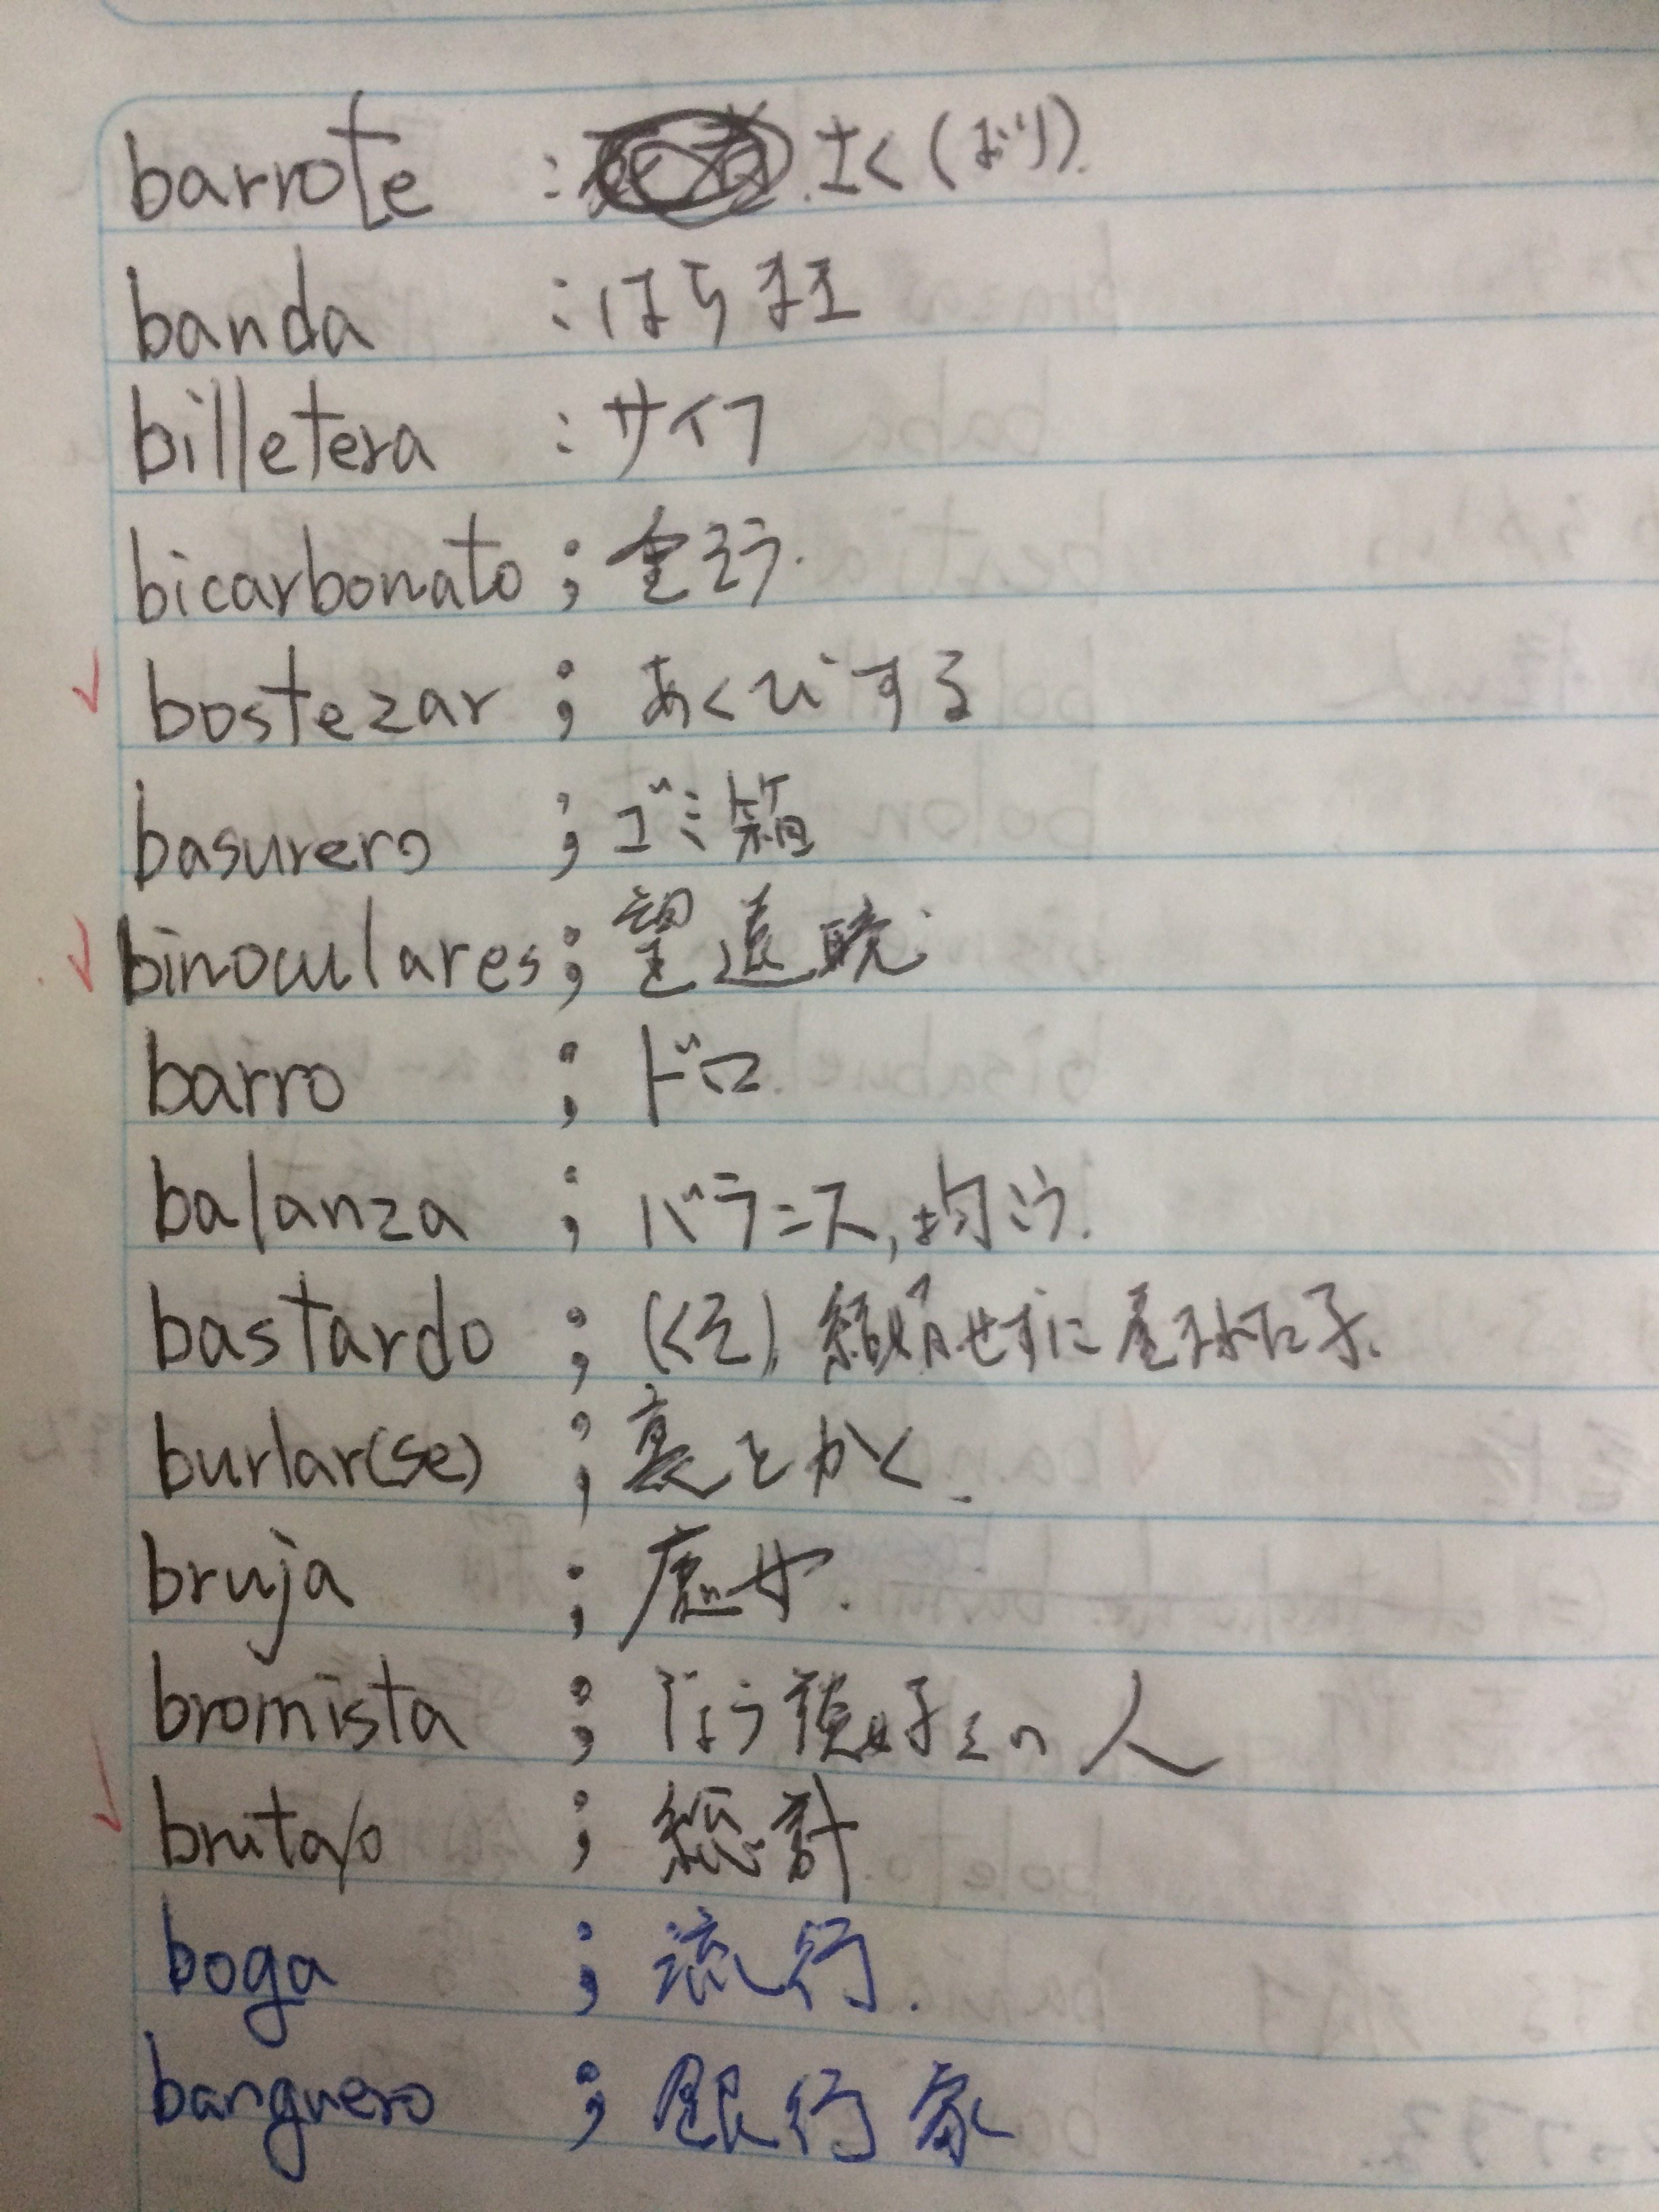 barrote : さく(おり).
banda : はち巻
billetera : サイフ
bicarbonato ; 重そう.
bostezar ; あくびする
basurero ; ゴミ箱
binoculares ; 望遠鏡
barro ; ドロ
balanza ; バランス, 均こう.
bastardo ; (くそ), 結婚せずに産まれた子.
burlar(se) ; 裏をかく.
bruja ; 魔女.
bromista ; じょう談好きの人
bruta/o ; 総計
boga ; 流行.
banquero ; 銀行家